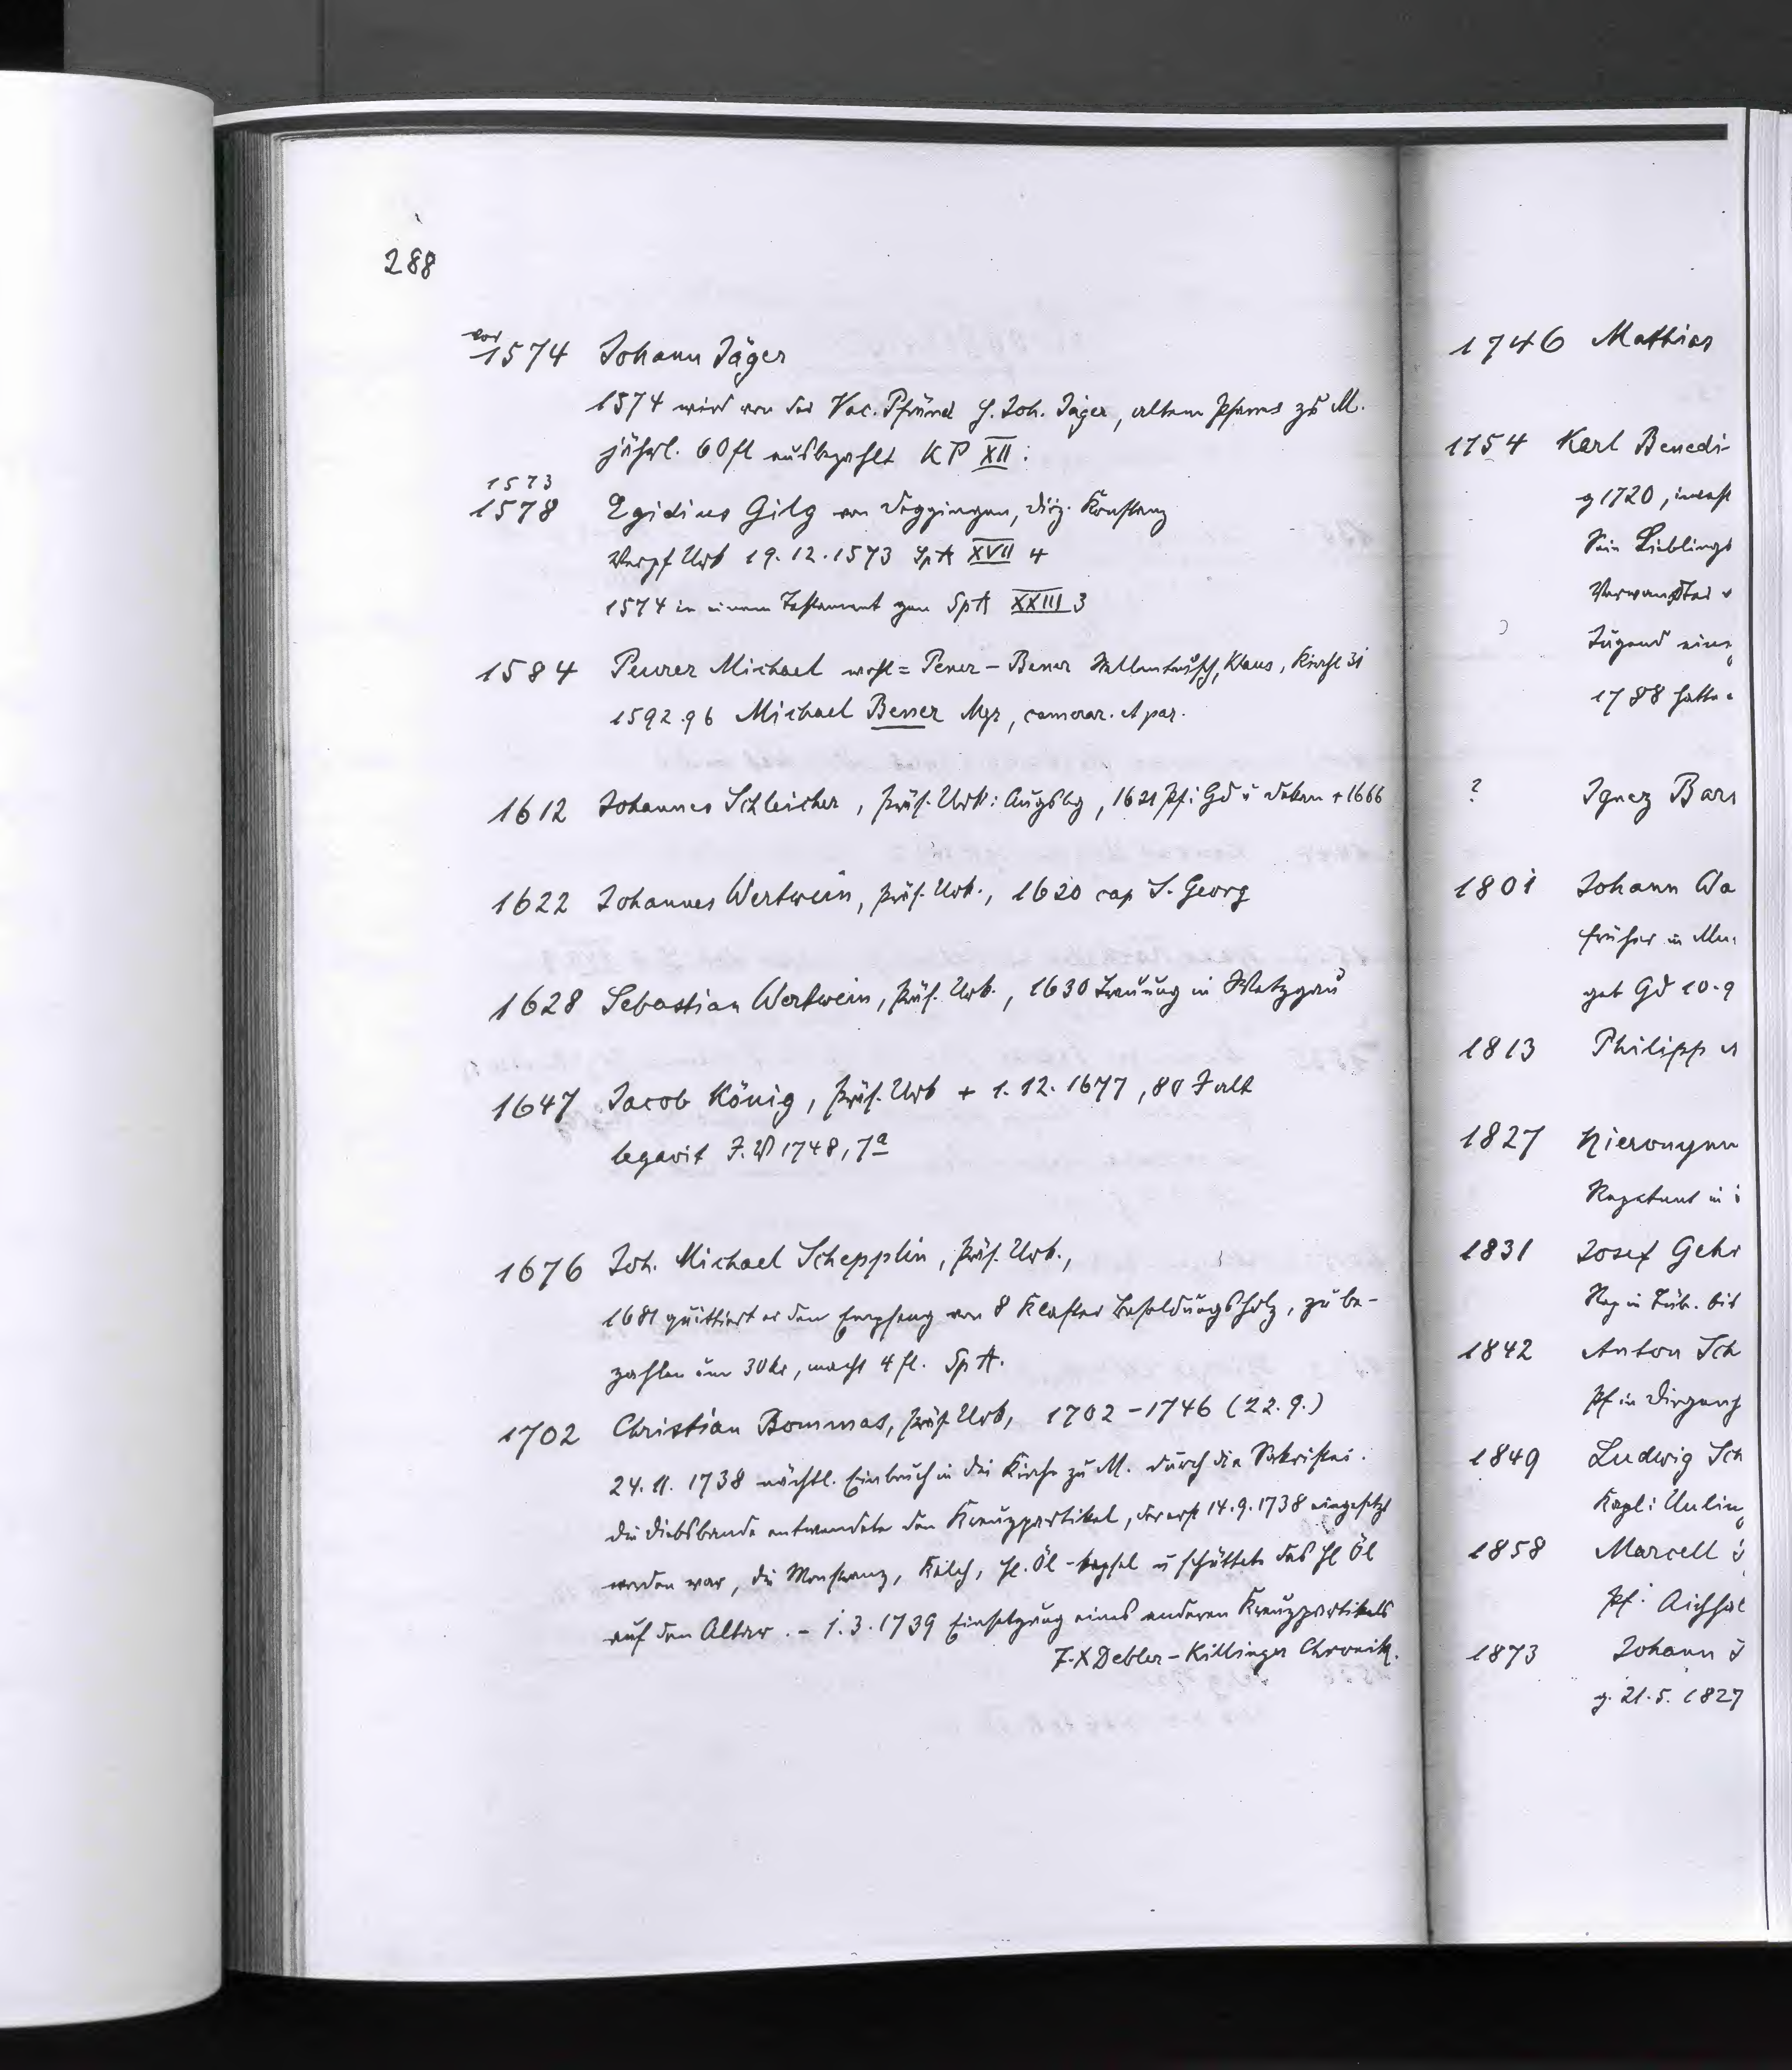 288
vor
1574 Johann Jäger
1574 wird von der Vac. Pfründ H. Joh. Jäger, altem Pfarrer zu M.
jährl. 60 fl ausbezahlt KP XII:
1573
1578 Egidius Gilg von Deggingen, Diöz. Konstanz
Urb 19.12.1573 SpA XVII 4
1574 in einem Testament gen SpA XXIII 3
1584 Peurer Michael wohl = Pener - Bener Klaus, 31
1592.96 Michael Bener Mgr, camerar. et par.
1612 Johannes Schleicher, präs. Urb: Augsbg, 1621 Pf: Gd u Dekan + 1666
1622 Johannes Wertwein, präs. Urb., 1620 cap S. Georg
1628 Sebastian Wertwein, präs. Urb., 1630 Trauung in Wetzgau
1647 Jacob König, präs. Urb + 1.12.1677, 80 J alt
legavit J. W 1748, 7a
1676 Joh. Michael Schepplin, präs. Urb.,
1681 quittiert er den Empfang von 8 Klafter Besoldungsholz, zu be-
zahlen um 30 kr, macht 4 fl. Sp A.
1702 Christian Bommas, präs. Urb, 1702 - 1746 (22.9.)
24.11.1738 nächtl. Einbruch in die Kirche zu M. durch die Sakristei.
Die Diebsbande entwendete den Kreuzpartikel, der erst 14.9.1738 eingesetzt
worden war, die Monstranz, Kelch, hl. Öl-kapsel u schüttete das hl Öl
auf den Altar. - 1.3.1739 Einsetzung eines anderen Kreuzpartikels
F. X Debler - Killinger Chronik.
1746 Mathias
1754 Karl Benedi-
g 1720, invest
Sein Lieblings
Verwandter
Tugend eine
1788 hatte
? Ignaz Bar
1801 Johann Wa
früher in Mu
geb Gd 10.9
1813 Philipp
1827 Hieronymu
Repetent in
1831 Josef Gehr
Rep in Tüb. bis
1842 Anton Sch
Pf in Dirgenh
1849 Ludwig Sch
Kapl: Unlin
1858 Marcell
Pf: Aichhal
1873 Johann
g. 21.5.1827